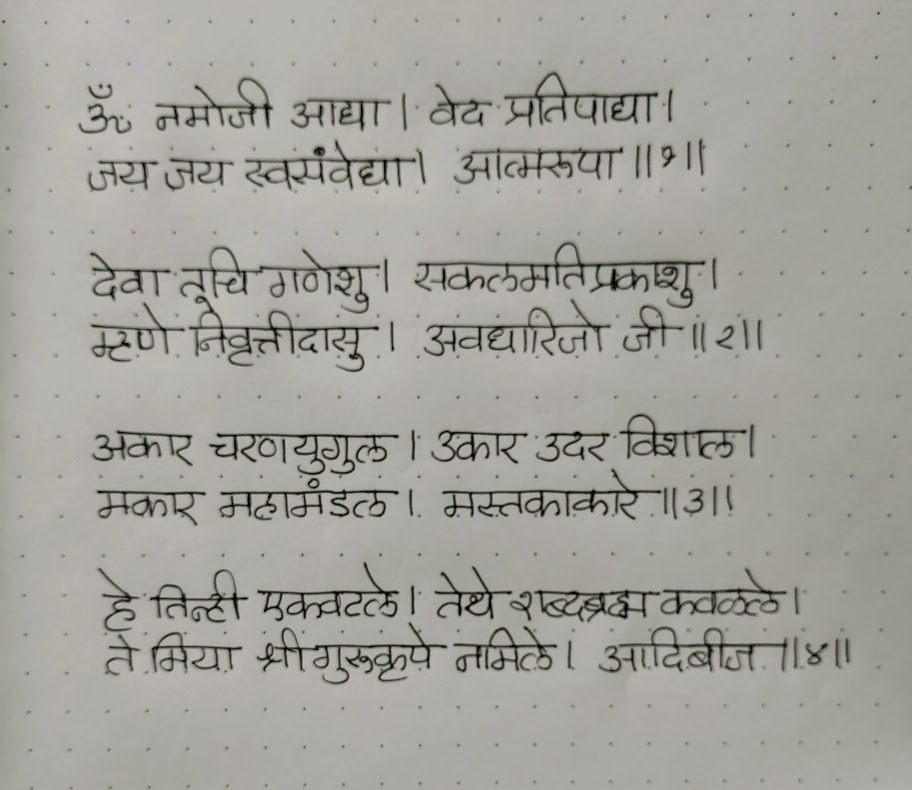 ॐ नमोजी आद्या। वेद प्रतिपाद्या।
जय जय स्वसंवेद्या। आत्मरूपा॥१॥
देवा तूचि गणेशु। सकलमतिप्रकाशु।
म्हणे निवृत्तीदासु। अवधारिजो जी॥२॥
अकार चरणयुगुल। उकार उदर विशाल।
मकार महामंडल। मस्तकाकारे॥३॥
हे तिन्ही एकवटले। तेथे शब्दब्रह्म कवळले।
ते मिया श्रीगुरुकृपे नमिले। आदिबीज॥४॥